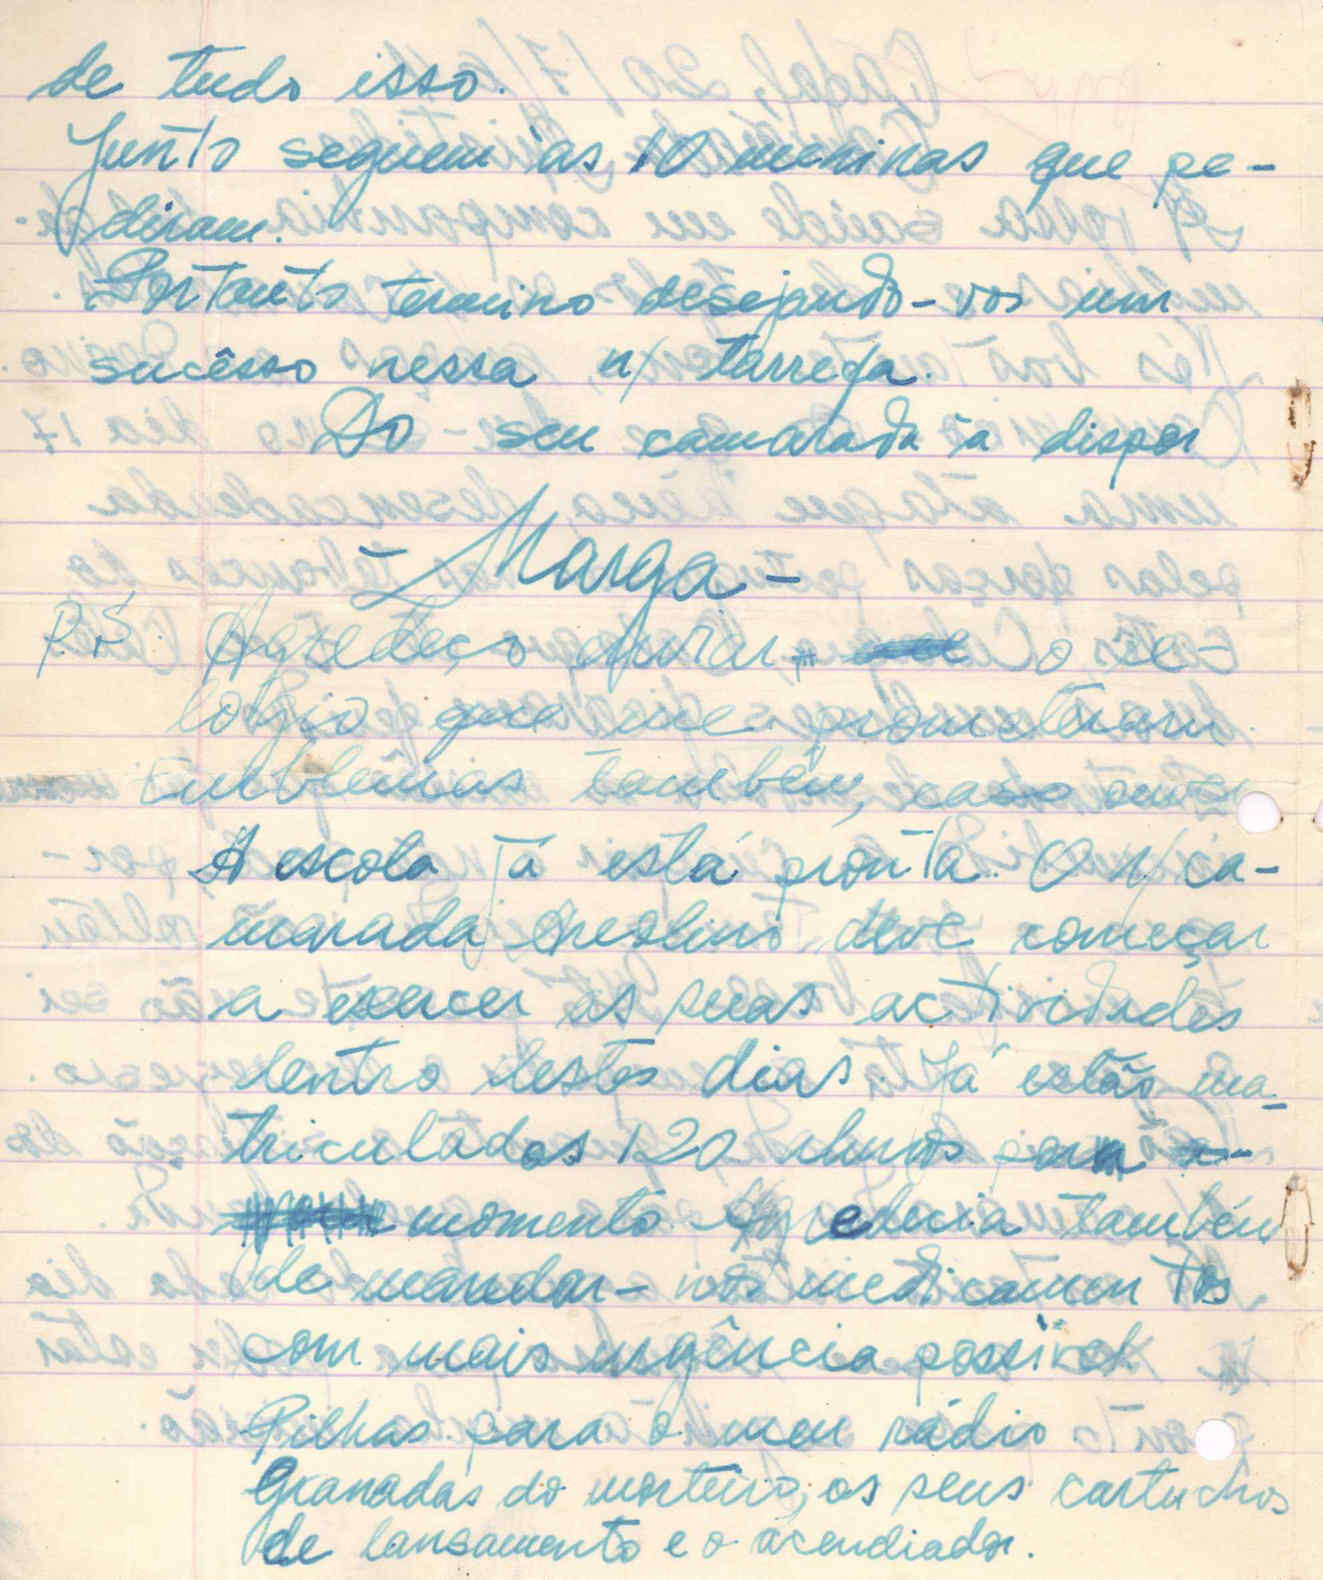 de tudo isso.
Junto seguem as 10 meninas que pe-
diram.
Portanto termino desejando-vos um
sucêsso nessa n/ tarrefa.
Do seu camarada à dispor
- Marga -
P.S. Agredeço enviar, o re-
lógio que me prometeram.
Emblêmas também, caso
A escola já está pronta. O n/ ca-
marada deve começar
a exercer as suas actividades
dentro destes dias. Já estão ma-
triculados 120 alunos para o
momento. Agredecia também
de mandar-nos medicamentos
com mais urgência possivel.
Pilhas para o meu rádio
Granadas do morteiro, os seus cartuchos
de lansamento e o acendiador.